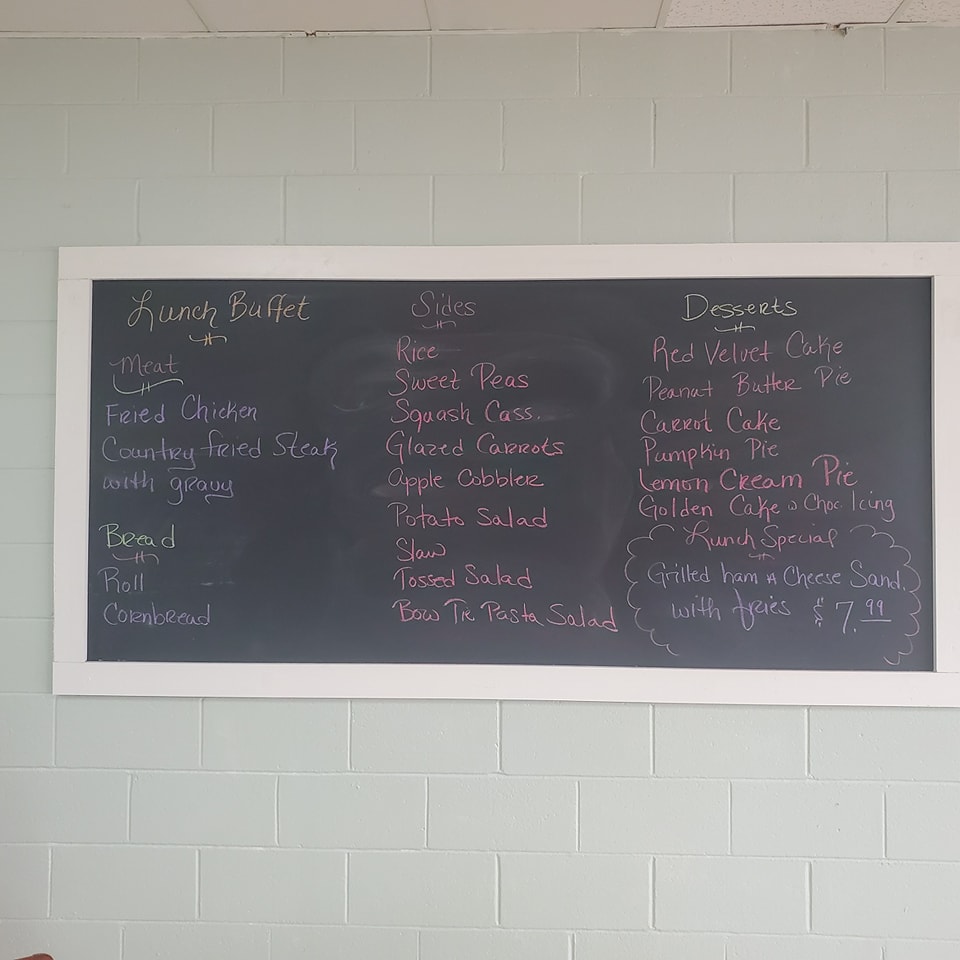 Lunch Buffet
Meat
Fried Chicken
Country fried Steak
with gravy
Bread
Roll
Cornbread
Sides
Rice
Sweet Peas
Squash Cass.
Glazed Carrots
Apple Cobbler
Potato Salad
Slaw
Tossed Salad
Bow Tie Pasta Salad
Desserts
Red Velvet Cake
Peanut Butter Pie
Carrot Cake
Pumpkin Pie
Lemon Cream Pie
Golden Cake w Choc Icing
Lunch Special
Grilled ham & Cheese Sand.
with fries $7.99